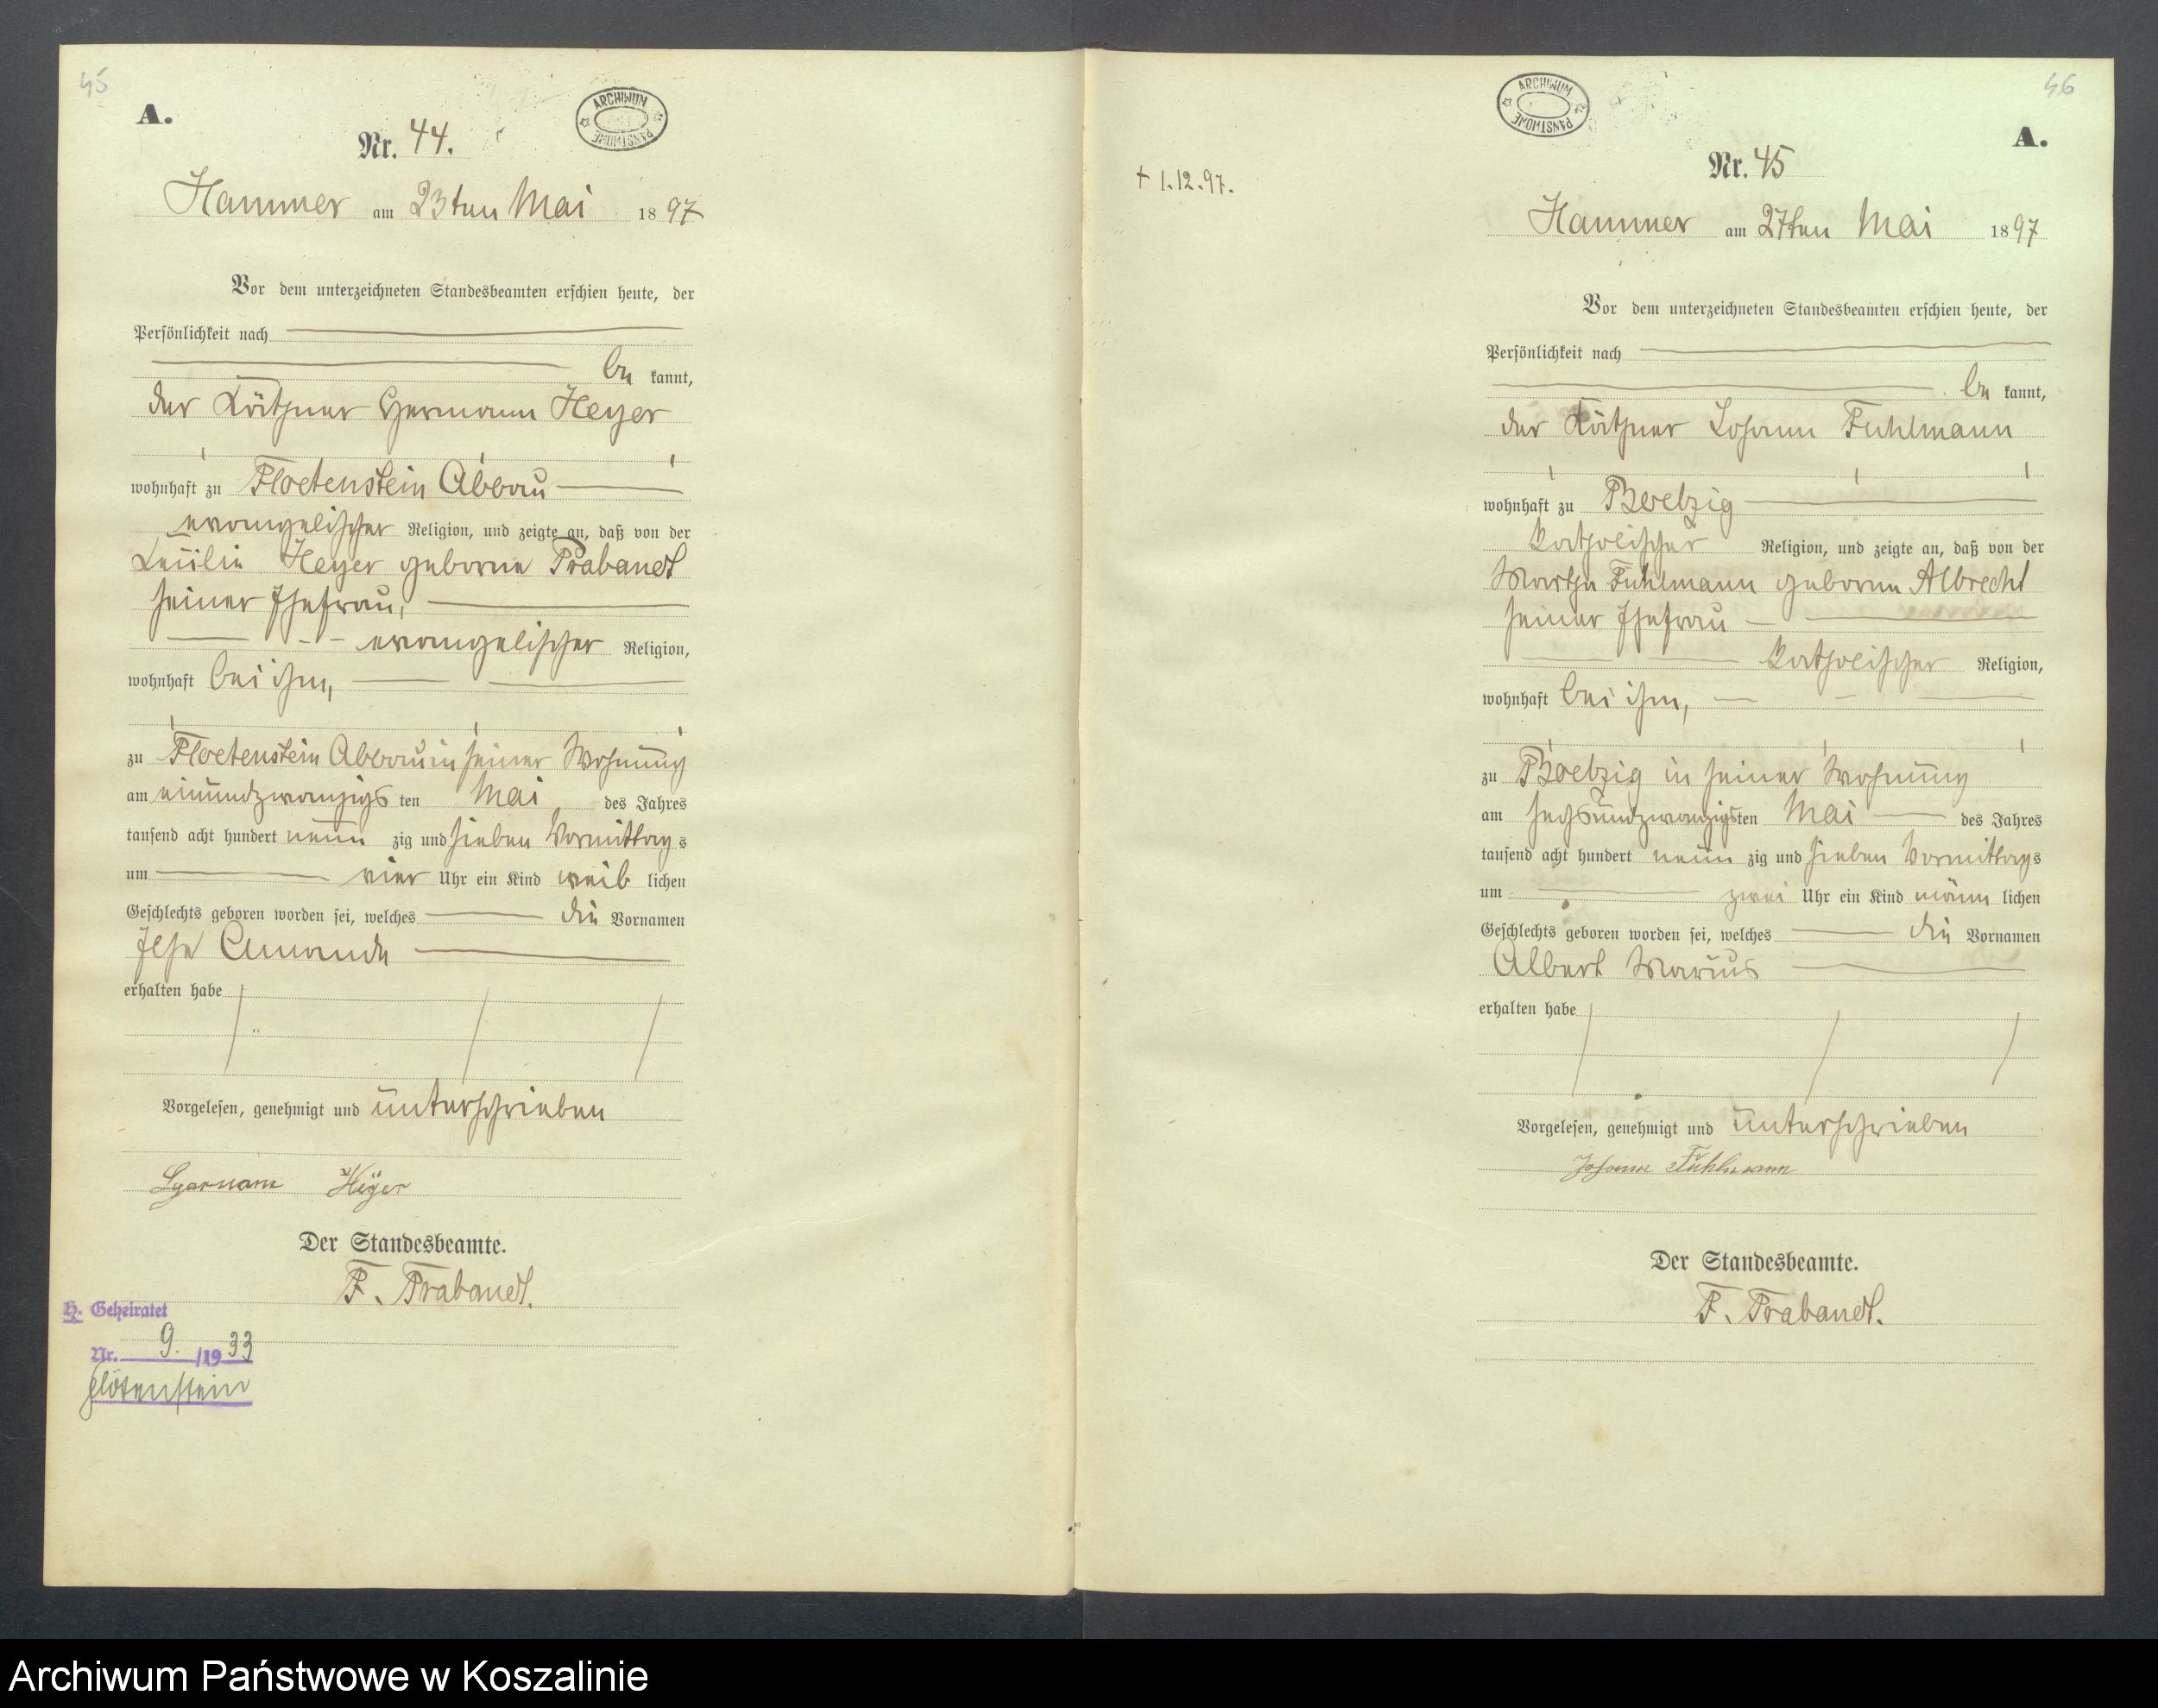 45
A.
ARCHIWUM PAŃSTWOWE
Nr. 44.
Hammer am 23ten Mai 1897
Vor dem unterzeichneten Standesbeamten erschien heute, der
Persönlichkeit nach
be kannt,
der Käthner Hermann Heyer
wohnhaft zu Floetenstein Abbau
evangelischer Religion, und zeigte an, daß von der
Heyer geborne Prabandt
seiner Ehefrau,
evangelischer Religion,
wohnhaft bei ihm,
zu Floetenstein Abbau in seiner Wohnung
am einundzwanzigs ten Mai des Jahres
tausend acht hundert neun zig und sieben Vormittag s
um vier Uhr ein Kind weib lichen
Geschlechts geboren worden sei, welches die Vornamen
Ilse Amanda
erhalten habe
Vorgelesen, genehmigt und unterschrieben
Hermann Heyer
Der Standesbeamte.
F. Prabandt.
H. Geheiratet
Nr. 9. /1933
Flötenstein
46
A.
ARCHIWUM PAŃSTWOWE
Nr. 45
+ 1.12.97.
Hammer am 27ten Mai 1897
Vor dem unterzeichneten Standesbeamten erschien heute, der
Persönlichkeit nach
be kannt,
der Käthner Johann Fuhlmann
wohnhaft zu Boelzig
katholischer Religion, und zeigte an, daß von der
Martha Fuhlmann geborne Albrecht
seiner Ehefrau
katholischer Religion,
wohnhaft bei ihm,
zu Boelzig in seiner Wohnung
am sechsundzwanzigsten Mai des Jahres
tausend acht hundert neun zig und sieben Vormittags
um zwei Uhr ein Kind männ lichen
Geschlechts geboren worden sei, welches die Vornamen
Albert Marius
erhalten habe
Vorgelesen, genehmigt und unterschrieben
Johann Fuhlmann
Der Standesbeamte.
F. Prabandt.
Archiwum Państwowe w Koszalinie